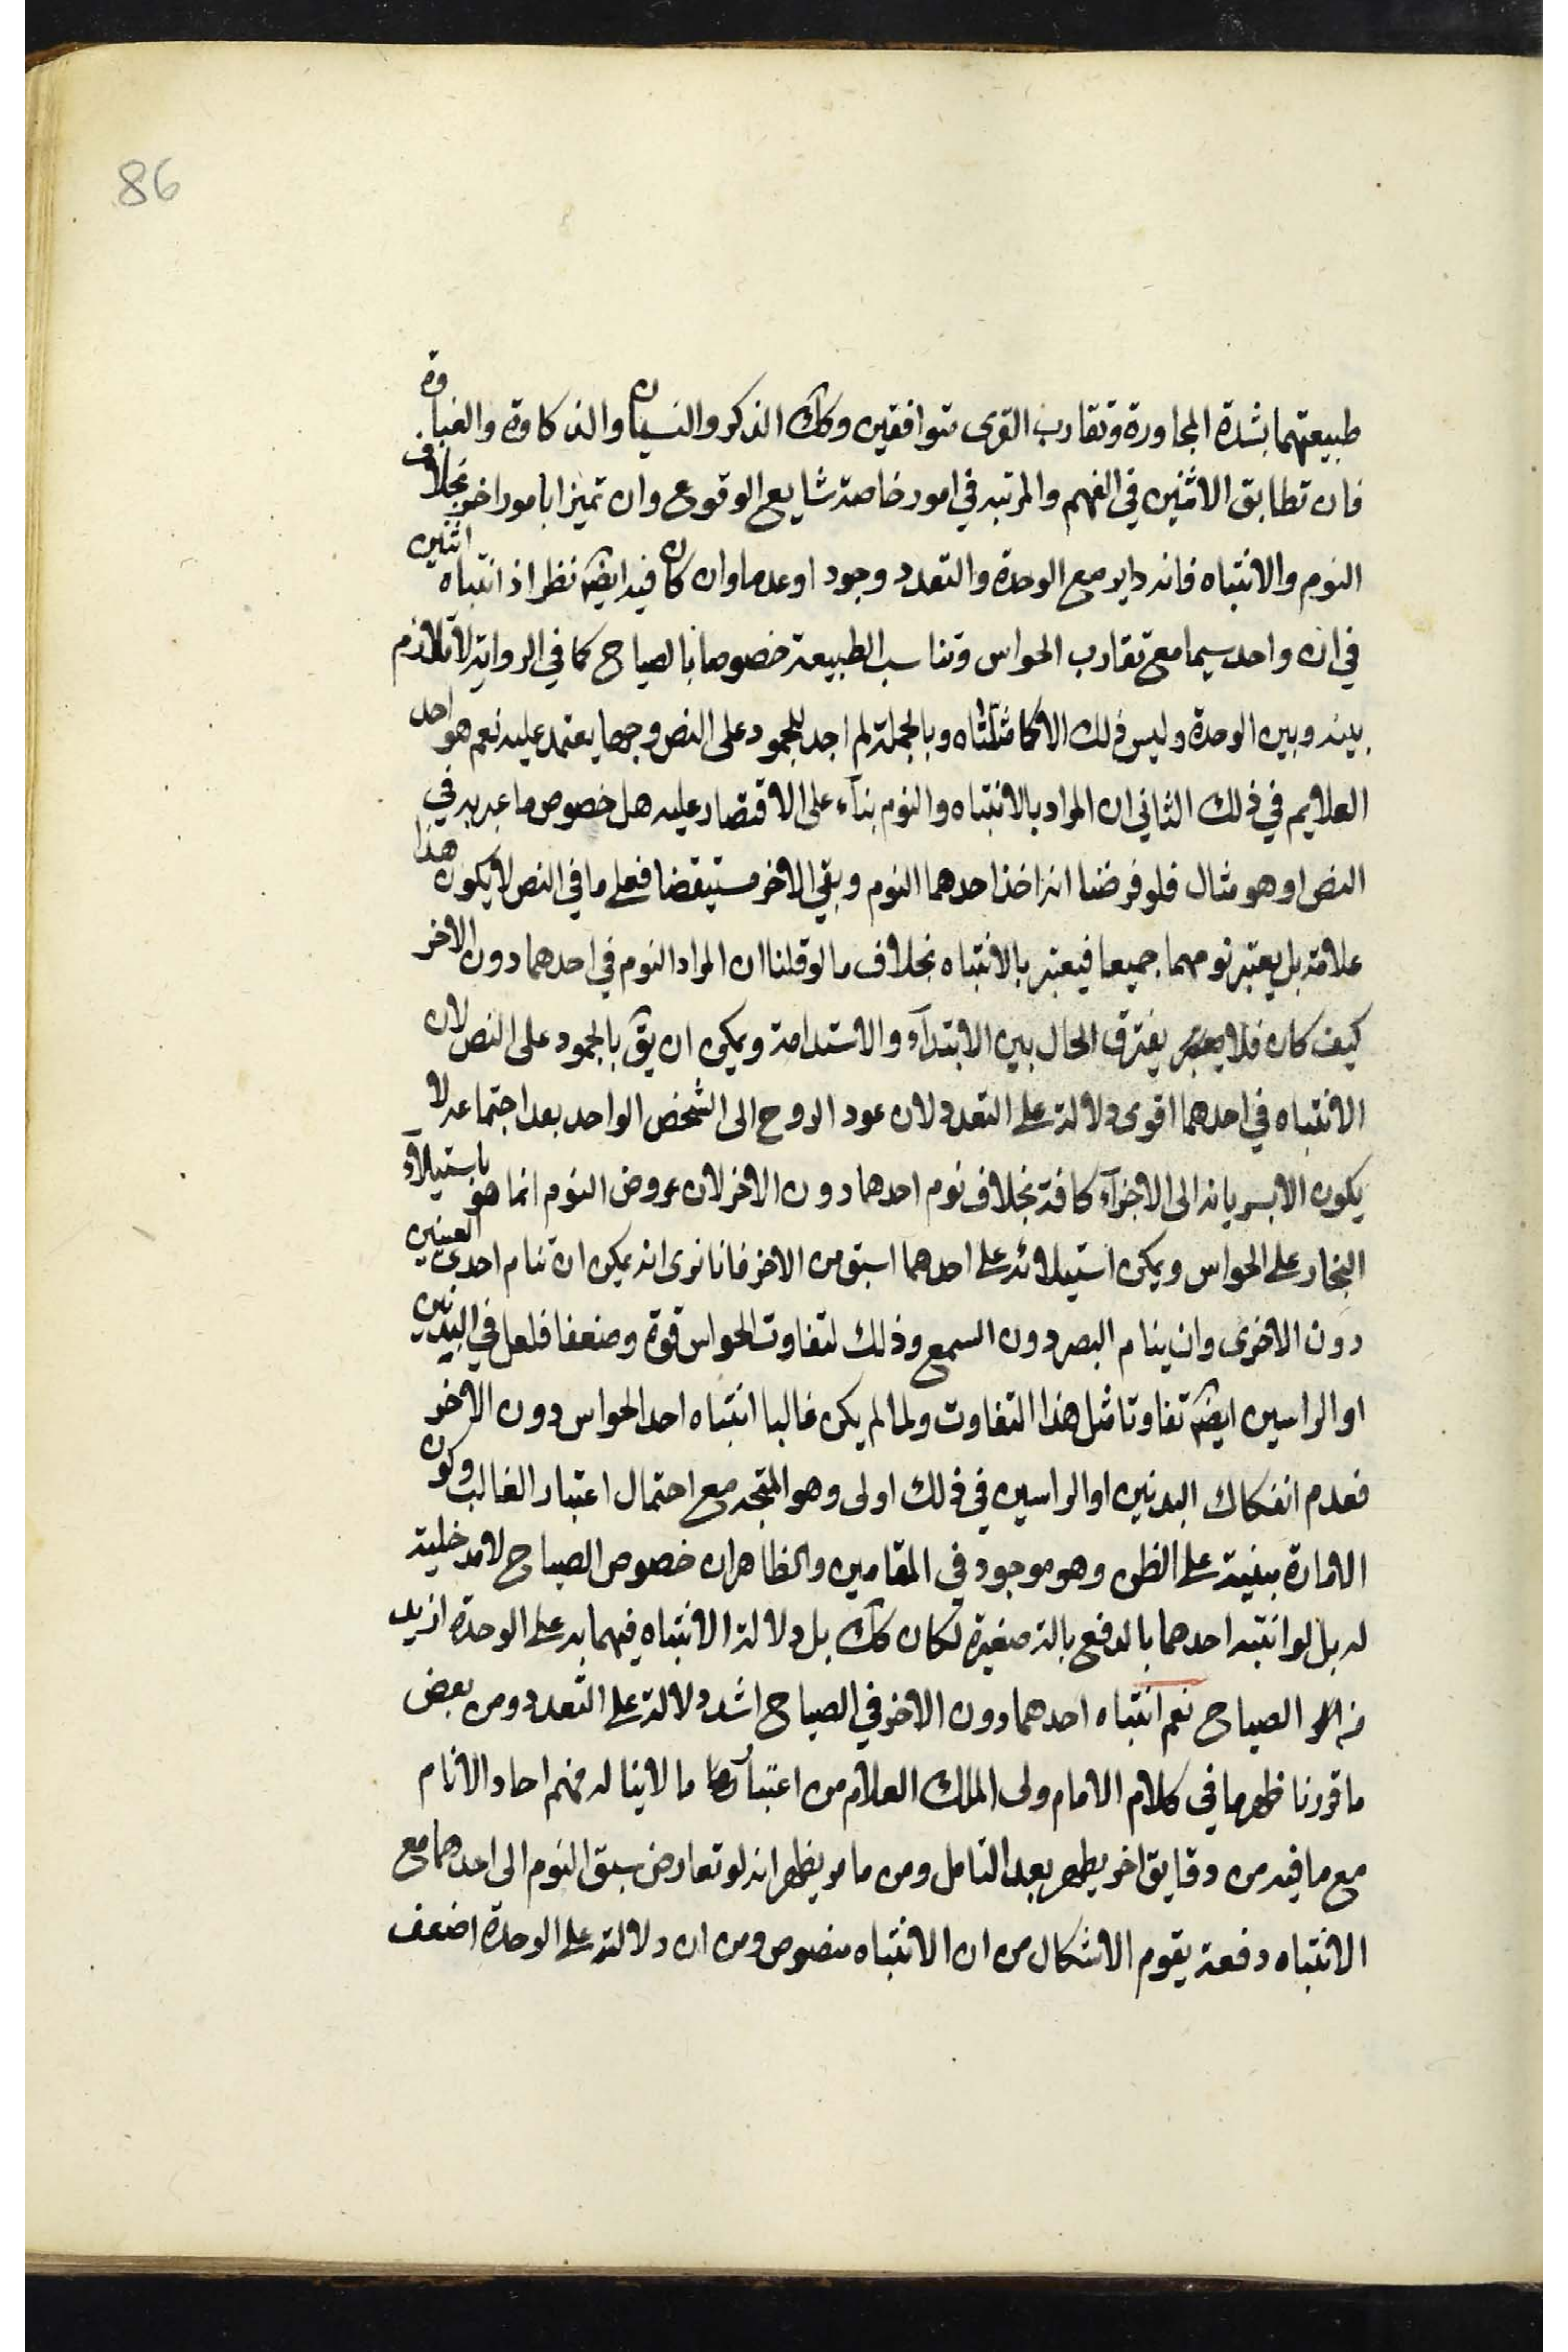 86
طبيعتهما بشدة المجاورة وتقارب القوى متوافقين وكك الذكر والنسيان والذكاوة والغباوة
فان تطابق الاثنين في الفهم والمرتبه في امور خاصة شايع الوقوع وان تميزا بامور اخر بخلاف
النوم والانتباه فانه داير مع الوحدة والتعدد وجود اوعدما وان كان فيه ايضا نظر اذ انتباه اثنين
في ان واحد سيما مع تقارب الحواس وتناسب الطبيعة خصوصا بالصياح كما في الرواية لا تلازم
بينه وبين الوحدة وليس ذلك الا كما مثلناه وبالجملة لم اجد للجمود على النص وجها يعتمد عليه نعم هو احد
العلايم في ذلك الثاني ان المراد بالانتباه والنوم بناء على الاقتصار عليه هل خصوص ما عبر به في
النص او هو مثال فلو فرضنا انه اخذ احدهما النوم وبقي الاخر مستيقضا فعلى ما في النص لا يكون هذا
علامة بل يعتبر نومهما جميعا فيعتبر بالانتباه بخلاف ما لو قلنا ان المراد النوم في احدهما دون الاخر
كيف كان فلا يفترق الحال بين الابتداء والاستدامة ويمكن ان يق بالجمود على النص لان
الانتباه في احدهما اقوى دلالة على التعدد لان عود الروح الى الشخص الواحد بعد اجتماعه لا
يكون الا بسريانه الى الاجزاء كافة بخلاف نوم احدهما دون الاخر لان عروض النوم انما هو باستيلاء
البخار على الحواس ويمكن استيلائه على احدهما اسبق من الاخر فانا نرى انه يمكن ان تنام احدى العينين
دون الاخرى وان ينام البصر دون السمع وذلك لتفاوت الحواس قوة وضعفا فلعل في البدنين
او الراسين ايضا تفاوتا مثل هذا التفاوت ولما لم يكن غالبا انتباه احد الحواس دون الاخر
فعدم انفكاك البدنين او الراسين في ذلك اولى وهو المتجه مع احتمال اعتبار الغالب وكون
الامارة مبنية على الظن وهو موجود في المقامين والظاهر ان خصوص الصياح لا مدخلية
له بل لو انتبه احدهما بالدفع بالة صغيرة لكان كك بل دلالة الانتباه فيهما به على الوحدة ازيد
من الصياح نعم انتباه احدهما دون الاخر في الصياح اشد دلالة على التعدد ومن بعض
ما قررنا ظهر ما في كلام الامام ولى الملك العلام من اعتبار ما لا يناله فهم احاد الانام
مع ما فيه من دقايق اخر يظهر بعد التامل ومن ما مر يظهر انه لو تعارض سبق النوم الى احدهما مع
الانتباه دفعة يقوم الاشكال من ان الانتباه منصوص ومن ان دلالته على الوحدة اضعف